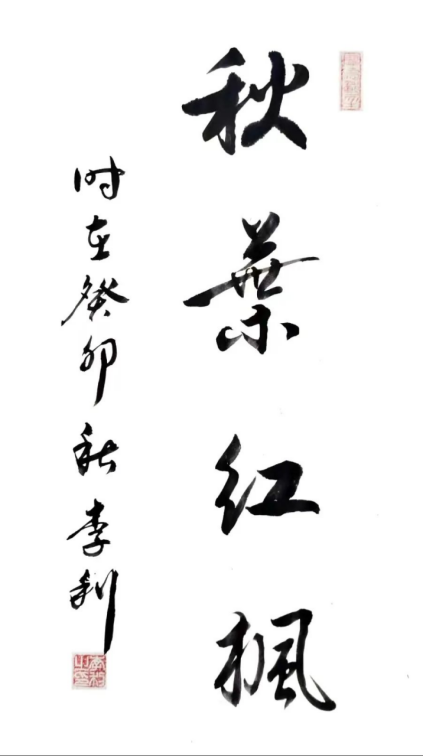 秋葉红楓
时在癸卯秋李利